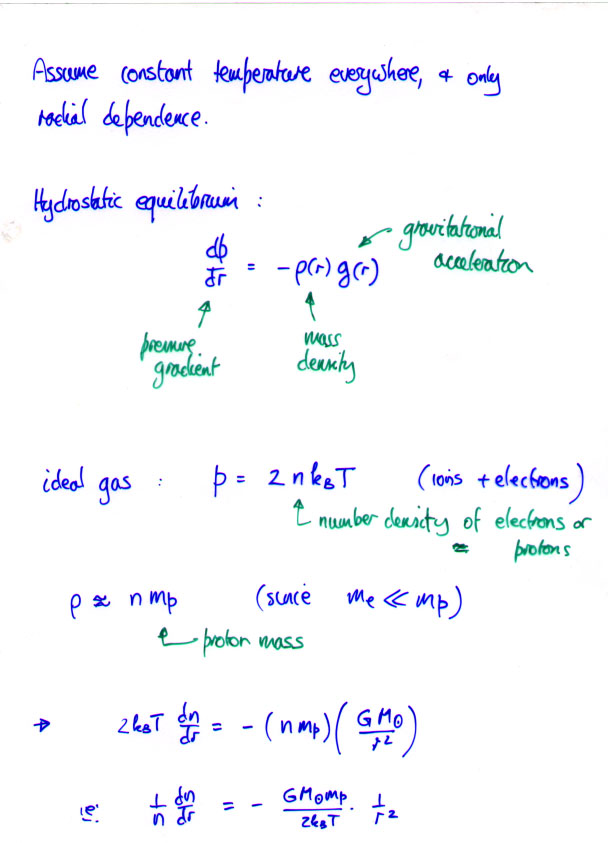 Assume constant temperature everywhere, & only
radial dependence.
Hydrostatic equilibrium :
dp/dr = -ρ(r) g(r)
gravitational
acceleration
pressure
gradient
mass
density
ideal gas : p = 2 n k_B T (ions + electrons)
number density of electrons or
protons
ρ ≈ n m_p (since m_e ≪ m_p)
proton mass
→ 2k_BT dn/dr = - (n m_p) (GM_⊙/r²)
ie: 1/n dn/dr = - GM_⊙m_p/2k_BT · 1/r²